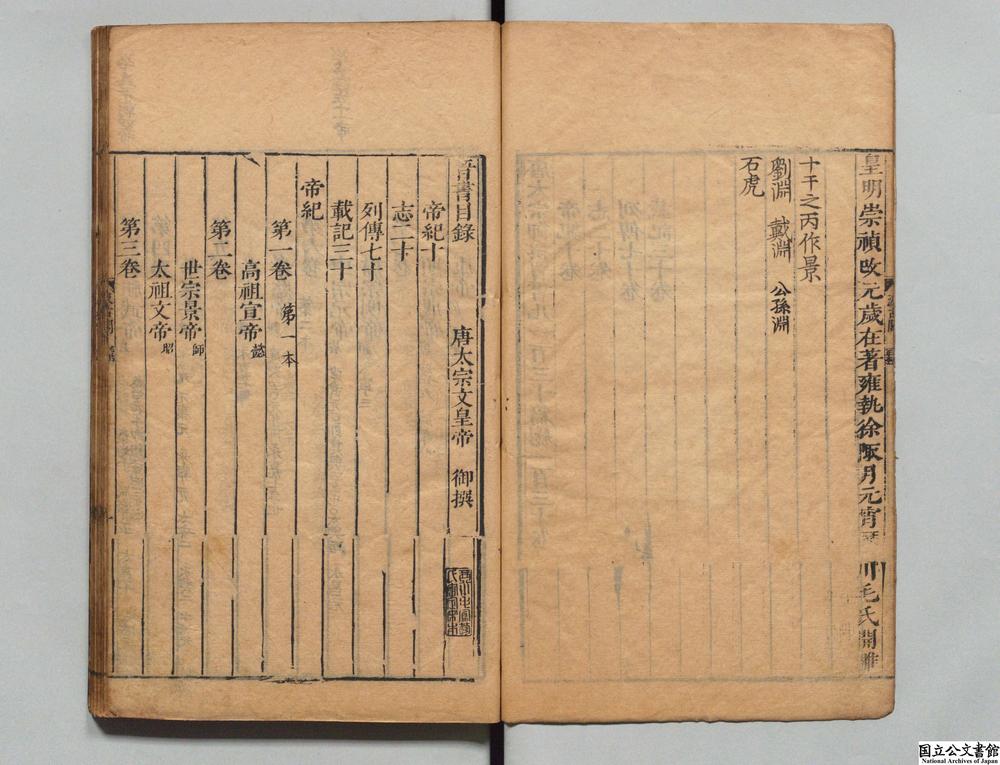 皇明崇禎改元歲在著雍執徐陬月元宵琴川毛氏開雕
十干之丙作景
劉淵 戴淵 公孫淵
石虎
晉書目錄 唐太宗文皇帝 御撰
帝紀十
志二十
列傳七十
載記三十
帝紀
第一卷 第一本
高祖宣帝懿
第二卷
世宗景帝師
太祖文帝昭
第三卷
国立公文書館
National Archives of Japan